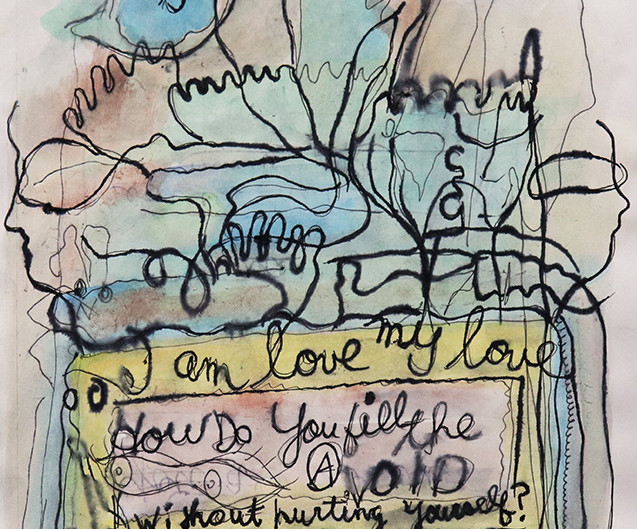 I am love my love
How Do You fill the
A VOID
without hurting yourself?